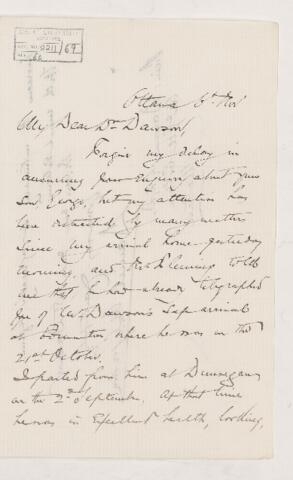 69
Ottawa 6th Nov
My Dear Dr Dawson,
Forgive my delay in
answering your enquiry about your
Son George, but my attention has
been distracted by many matters
since my arrival home yesterday
morning, and Mr Fleming told
me that I had already telegraphed
you of Mr Dawson's safe arrival
at Edmonton, where he was on the
21st October.
I parted from him at Dunvegan
on the 2nd September. At that time
he was in Excellent health, looking,